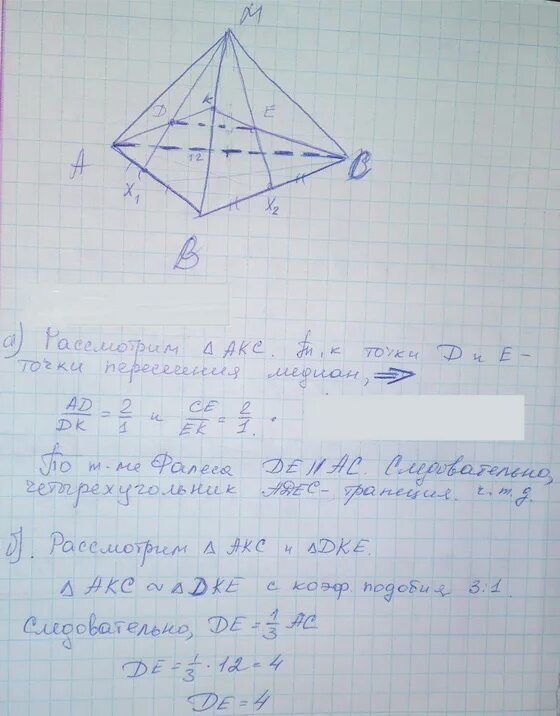 M
D
K
E
A
12
C
X₁
X₂
B
а) Рассмотрим △ AKC. Т. к точки D и E -
точки пересечения медиан, ⇒
AD/DK = 2/1 и CE/EK = 2/1.
По т-ме Фалеса DE || AC. Следовательно,
четырехугольник ADEC - трапеция. ч.т.д.
б). Рассмотрим △ AKC и △DKE.
△ AKC ~ △DKE с коэф. подобия 3:1.
Следовательно, DE = 1/3 AC
DE = 1/3 · 12 = 4
DE = 4